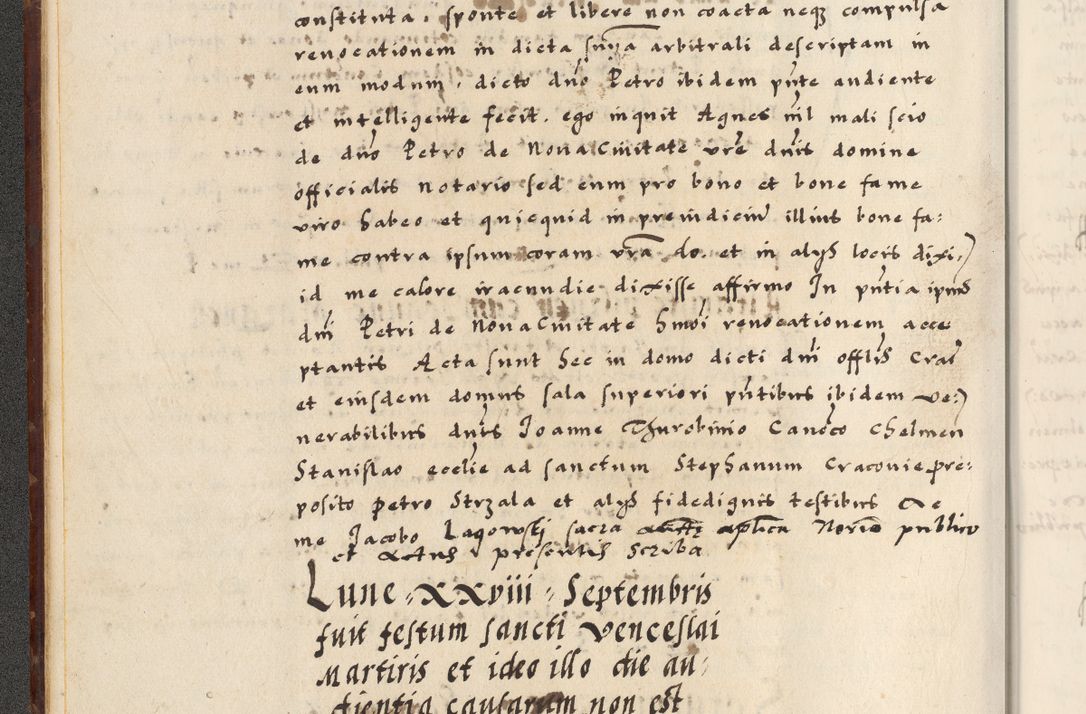 constituta. sponte et libere non coacta neqз compulsa
revocationem in dicta snīa arbitrali descriptam in
eum modum. dicto dno Petro ibidem pnte audiente
et intelligente fecit. ego inquit Agnes nil mali scio
de dno Petro de Nova Civitate vre dnis domine
officialis notario sed eum pro bono et bone fame
viro habeo et quicquid in preiudiciu illius bone fa:
me contra ipsum coram vra do. et in alijs locis dixi:
id me calore iracundie dixisse affirmo In pntia ipius
dni Petri de Nova Civitate hmoi revocationem acce
ptantis Acta sunt hec in domo dicti dni offlis Crac
et eiusdem domus sala superiori pntibus ibidem ve:
nerabilibus dnis Joanne Thurobinio Canoco Chelmen
Stanislao ecclie ad sanctum Stephanum Cracovie pre:
posito Petro Strzala et alijs fidedignis testibus Ae
me Jacobo Lagowski sacra aplica Norio publico
et Actus presentis scriba
Lune XXviii Septembris
fuit festum sancti Venceslai
Martiris et ideo illo die au:
dientia causarum non est